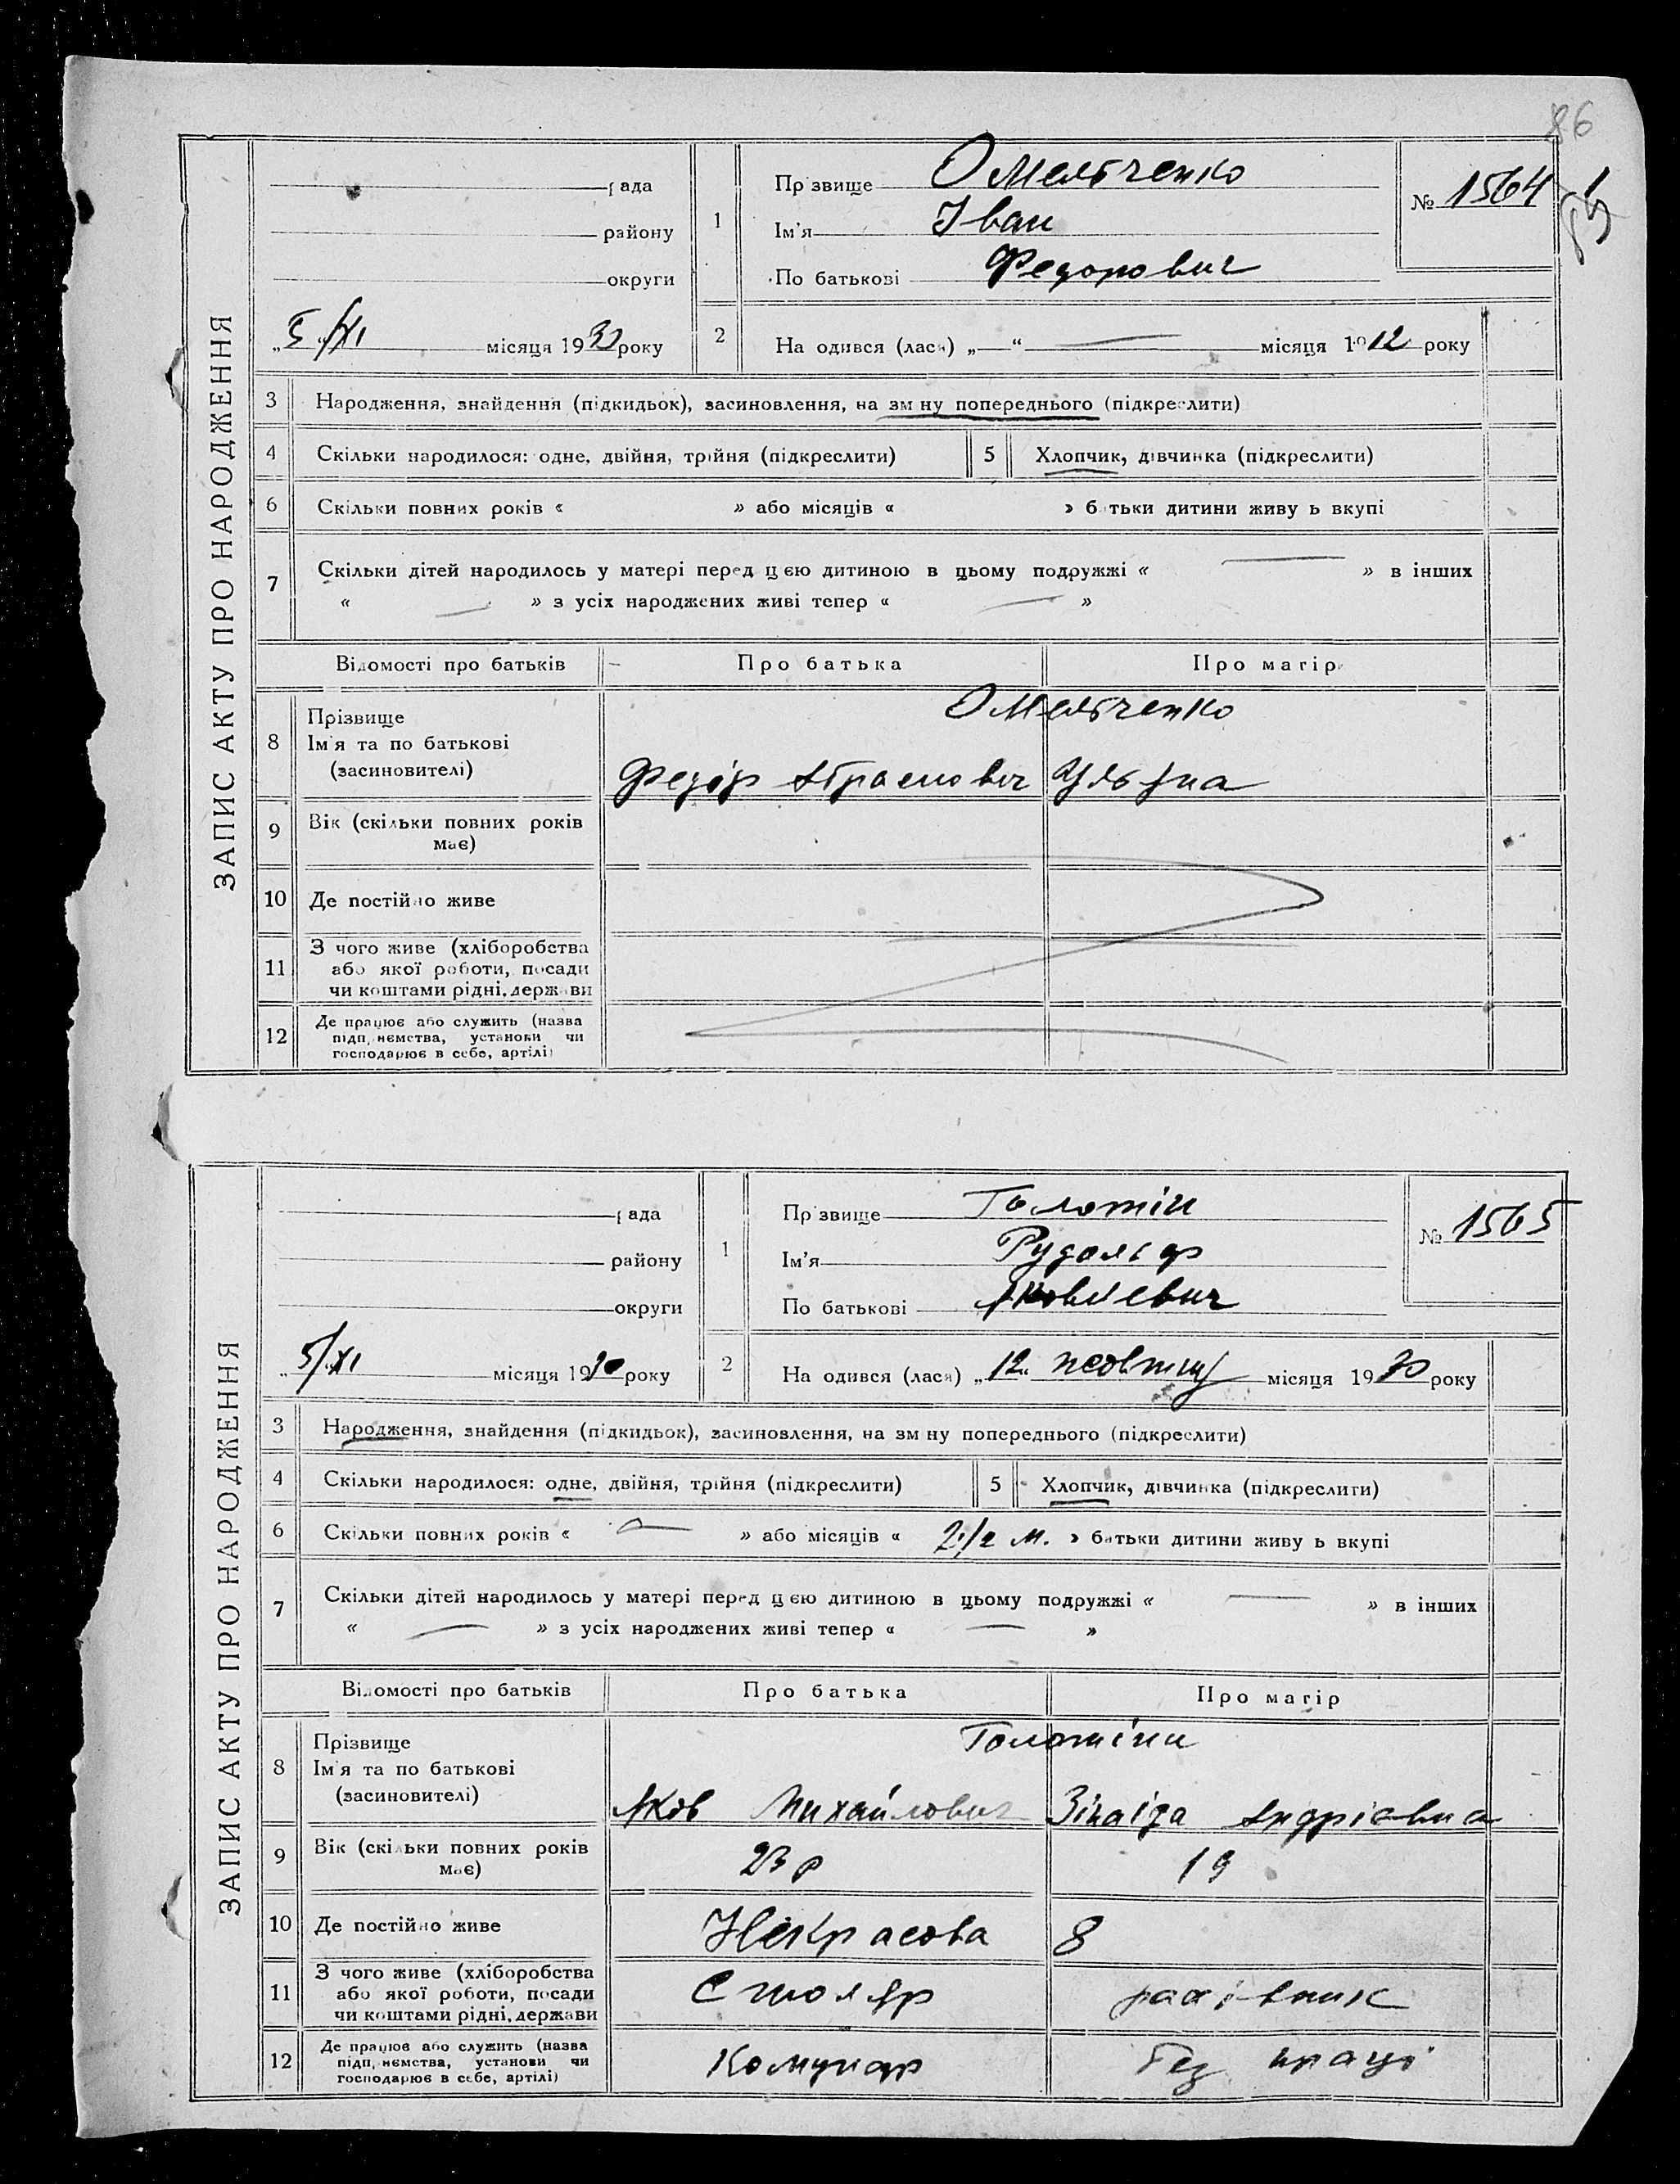 86
ЗАПИС АКТУ ПРО НАРОДЖЕННЯ
рада
району
округи
„5/XI місяця 1930 року
1
Прзвище Омельченко
Ім'я Іван
По батькові Федорович
№ 1564
2
На одився (лася) „—“ — місяця 1912 року
3
Народження, знайдення (підкидьок), засиновлення, на зм ну попереднього (підкреслити)
4
Скільки народилося: одне, двійня, трійня (підкреслити)
5
Хлопчик, дівчинка (підкреслити)
6
Скільки повних років « » або місяців « » б тьки дитини живу ь вкупі
7
Скільки дітей народилось у матері перед цією дитиною в цьому подружжі « — » в інших
« — » з усіх народжених живі тепер « — »
Відомості про батьків
Про батька
Про матір
8
Прізвище
Ім'я та по батькові
(засиновителі)
Омельченко
Федір
9
Вік (скільки повних років
має)
10
Де постійно живе
11
З чого живе (хліборобства
або якої роботи, посади
чи коштами рідні, держави
12
Де працює або служить (назва
підп, немства, установи чи
господарює в себе, артілі)
ЗАПИС АКТУ ПРО НАРОДЖЕННЯ
рада
району
округи
„5/XI місяця 1930 року
1
Прзвище Голотін
Ім'я Рудольф
По батькові Яковлевич
№ 1565
2
На одився (лася) „12“ жовтня місяця 1930 року
3
Народження, знайдення (підкидьок), засиновлення, на зм ну попереднього (підкреслити)
4
Скільки народилося: одне, двійня, трійня (підкреслити)
5
Хлопчик, дівчинка (підкреслити)
6
Скільки повних років « — » або місяців « 2 1/2 м. » батьки дитини живу ь вкупі
7
Скільки дітей народилось у матері перед цією дитиною в цьому подружжі « — » в інших
« — » з усіх народжених живі тепер « — »
Відомості про батьків
Про батька
Про матір
8
Прізвище
Ім'я та по батькові
(засиновителі)
Голотіни
Яків Михайлович
Зінаіда Андрієвна
9
Вік (скільки повних років
має)
23 р
19
10
Де постійно живе
Некрасова 8
11
З чого живе (хліборобства
або якої роботи, посади
чи коштами рідні, держави
Столяр
рахівник
12
Де працює або служить (назва
підп, немства, установи чи
господарює в себе, артілі)
Комунар
Без праці